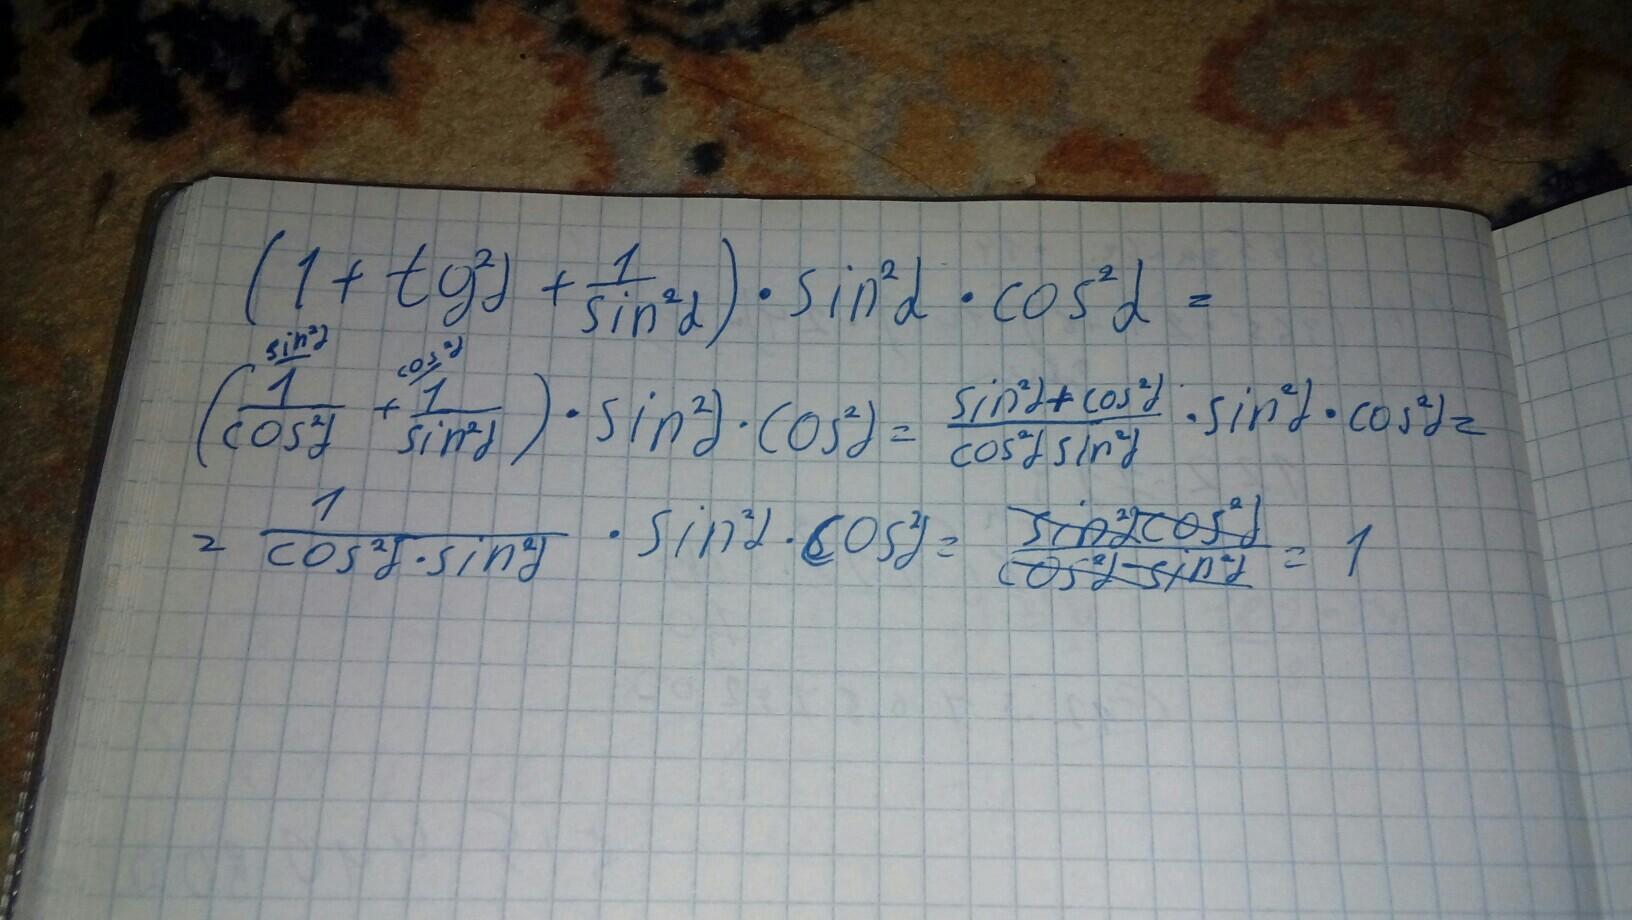 (1 + tg²α + 1/sin²α) · sin²α · cos²α =
sin²α cos²α
(1/cos²α + 1/sin²α) · sin²α · cos²α = sin²α + cos²α/cos²α sin²α · sin²α · cos²α =
= 1/cos²α · sin²α · sin²α · cos²α = sin²α cos²α/cos²α · sin²α = 1